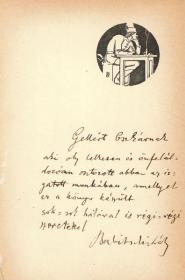 Gellért Oszkárnak
aki oly lelkesen és önfelál-
dozóan osztozott abban az iz-
gatott munkában, amellyel
ez a könyv készült
sok-sok hálával és régi-régi
szeretettel
Babits Mihály